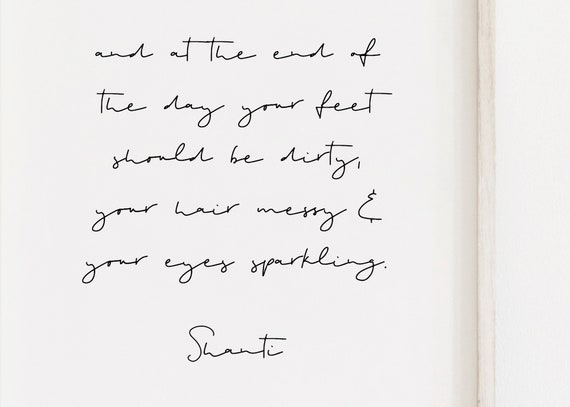 and at the end of
the day your feet
should be dirty,
your hair messy &
your eyes sparkling.
Shanti